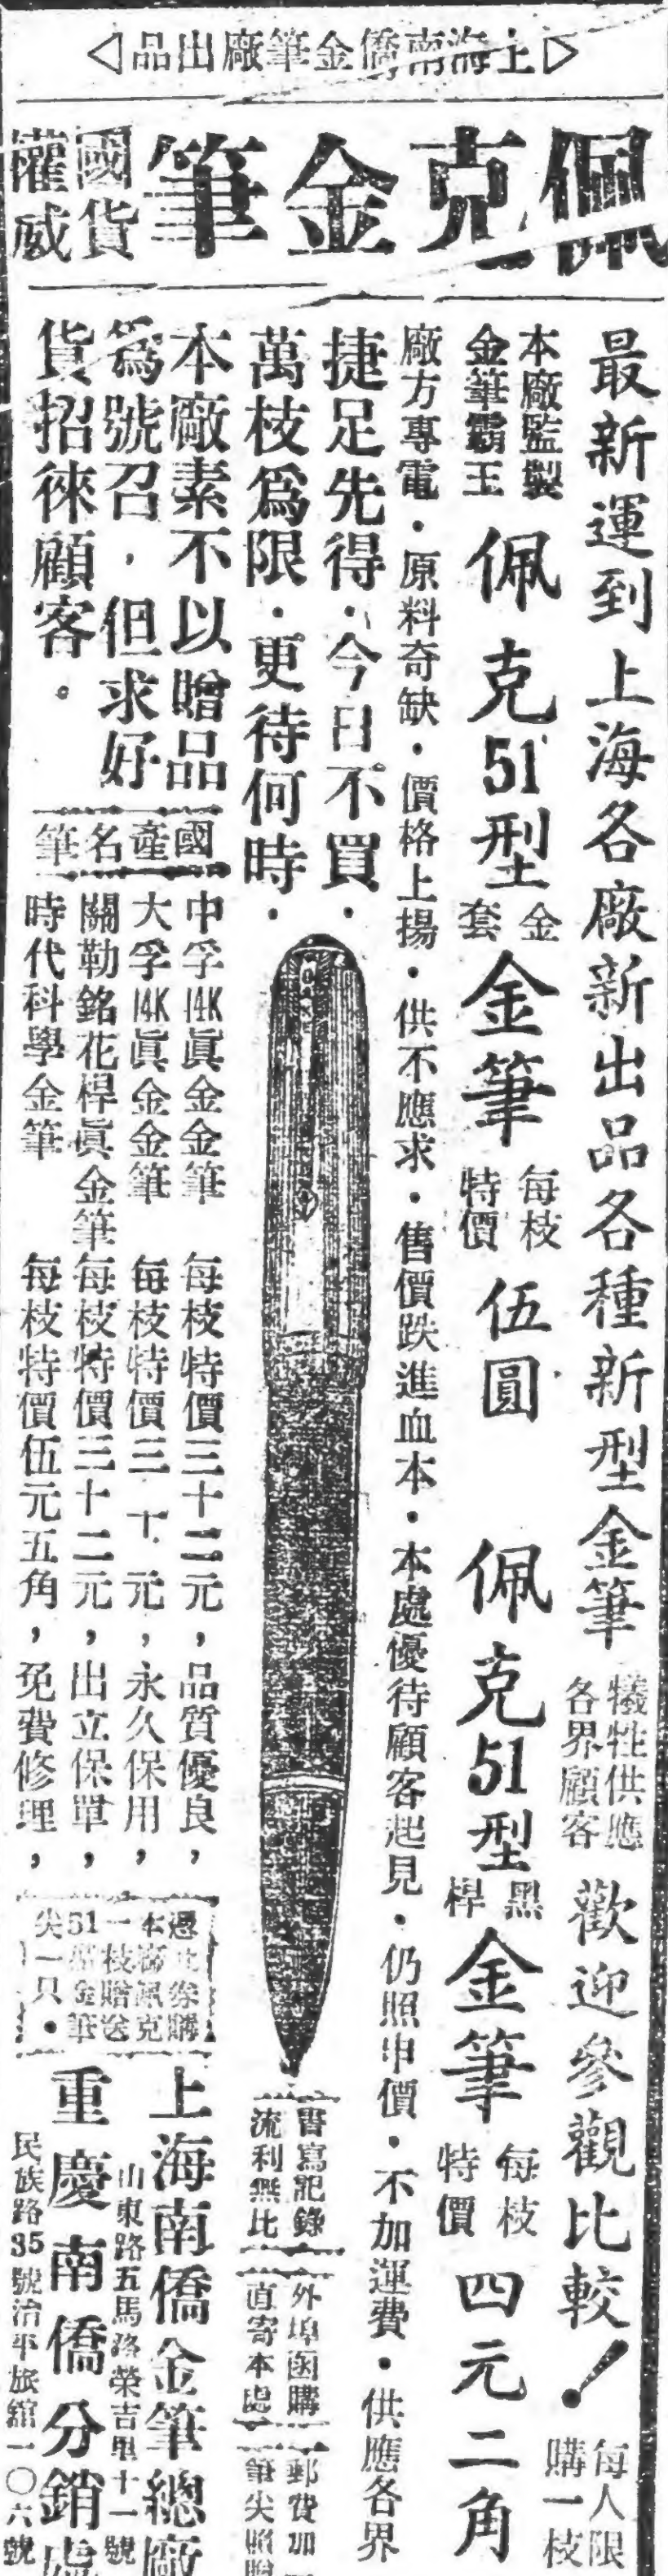 上海南僑金筆廠出品
佩克金筆
國貨
權威
最新運到上海各廠新出品各種新型金筆
犧牲供應
各界顧客
歡迎參觀比較！
每人限
購一枝
本廠監製
金筆霸王
佩克51型
金
套
金筆
每枝
特價
伍圓
佩克51型
黑
桿
金筆
每枝
特價
四元二角
廠方專電．原料奇缺．價格上揚．供不應求．售價跌進血本．本處優待顧客起見．仍照申價．不加運費．供應各界
捷足先得．今日不買．
萬枝為限．更待何時．
書寫記錄
流利無比
外埠函購
直寄本處
郵費加一
筆尖照
本廠素不以贈品
為號召，但求好
貨招徠顧客。
國產名筆
中孚14K眞金金筆 每枝特價三十二元，品質優良，
大孚14K眞金金筆 每枝特價三十元，永久保用，
關勒銘花桿眞金筆 每枝特價三十二元，出立保單，
時代科學金筆 每枝特價伍元五角，免費修理，
憑此券購
本廠佩克
一枝贈送
51型金筆
尖一只．
上海南僑金筆總廠
山東路五馬路榮吉里十一號
重慶南僑分銷處
民族路35號治平旅館一〇六號